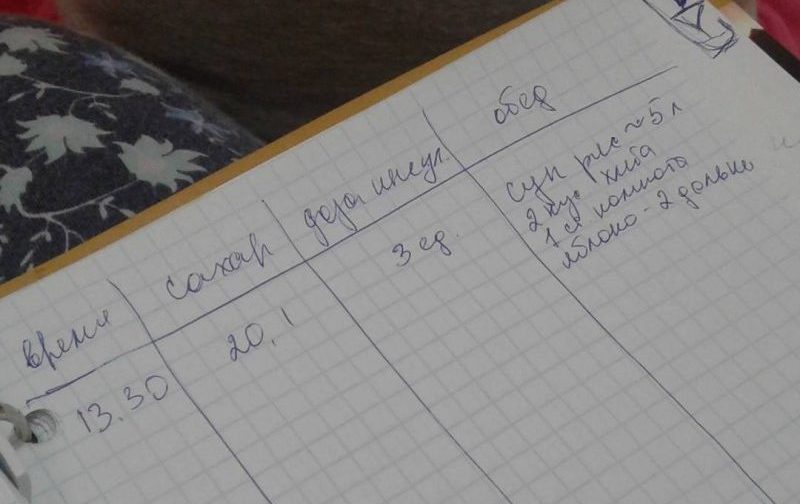 время сахар доза инсул. обед
13.30 20,1 3 ед. суп рис ~ 5 л
2 кус хлеба
1 ст компота
яблоко - 2 дольки